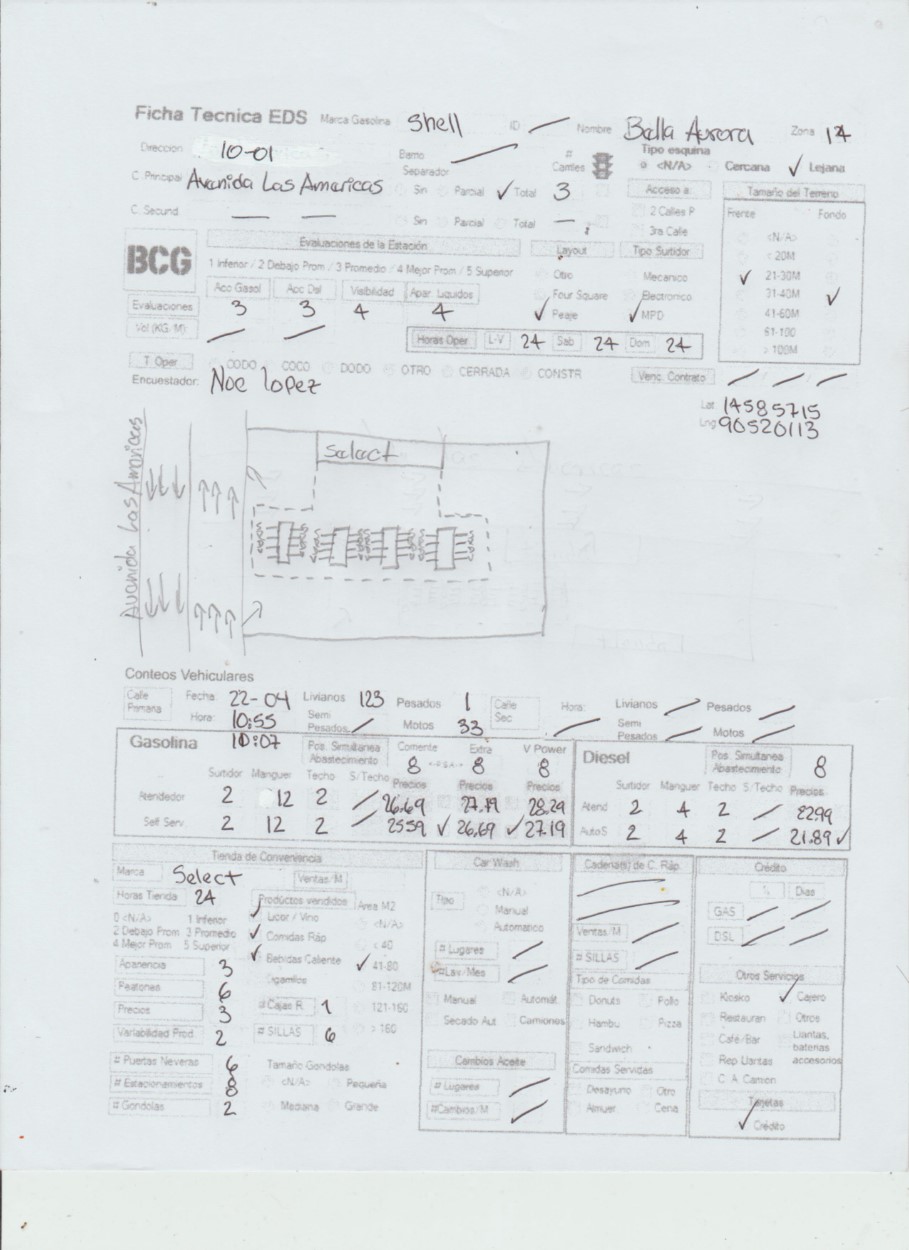 Ficha Tecnica EDS Marca Gasolina Shell ID — Nombre Bella Aurora Zona 14
Direccion 10-01 Barrio — # Carriles Tipo esquina <N/A> Cercana ✓ Lejana
C. Principal Avenida Las Americas Separador Sin Parcial ✓ Total 3 Acceso a: Tamaño del Terreno
C. Secund — — Sin Parcial Total — 2 Calles P Frente Fondo
3ra Calle <N/A>
BCG Evaluaciones de la Estación Layout Tipo Surtidor < 20M
1 Inferior / 2 Debajo Prom / 3 Promedio / 4 Mejor Prom / 5 Superior Otro Mecanico ✓ 21-30M
Acc Gasol Acc Dsl Visibilidad Apar. Liquidos Four Square Electronico 31-40M ✓
Evaluaciones 3 3 4 4 ✓ Peaje ✓ MPD 41-60M
Vol (KG/M) — — 61-100
Horas Oper L-V 24 Sab 24 Dom 24 > 100M
T. Oper CODO COCO DODO OTRO CERRADA CONSTR Venc. Contrato — — —
Encuestador: Noe Lopez
Lat 14585715
Lng 90520113
Avenida Las Americas
Select
Conteos Vehiculares
Calle Primaria Fecha 22-04 Livianos 123 Pesados 1 Calle Sec Hora: — Livianos — Pesados —
Hora: 10:55 Semi Pesados — Motos 33 Semi Pesados — Motos —
10:07
Gasolina Pos. Simultanea Abastecimiento Corriente 8 Extra 8 V Power 8 Diesel Pos. Simultanea Abastecimiento 8
Surtidor Manguer Techo S/Techo Precios Precios Precios Surtidor Manguer Techo S/Techo Precios
Atendedor 2 12 2 — 26.69 27.79 28.29 Atend 2 4 2 — 2299
Self Serv. 2 12 2 — 2559 ✓ 26.69 ✓ 27.19 AutoS 2 4 2 — 21.89 ✓
Tienda de Conveniencia Car Wash Cadena(s) de C. Ráp. Crédito
Marca Select Ventas/M <N/A> — % Dias
Horas Tienda 24 Productos vendidos Area M2 Tipo Manual — GAS — —
0 <N/A> 1 Inferior ✓ Licor / Vino <N/A> Automatico Ventas/M — DSL — —
2 Debajo Prom 3 Promedio ✓ Comidas Ráp < 40 # Lugares — # SILLAS —
4 Mejor Prom 5 Superior ✓ Bebidas Caliente ✓ 41-80 # Lav/Mes — Tipo de Comidas Otros Servicios
Apariencia 3 Cigarrillos 81-120M Manual Automát. Donuts Pollo Kiosko ✓ Cajero
Peatones 6 # Cajas R. 1 121-160 Secado Aut Camiones Hambu Pizza Restauran Otros
Precios 3 # SILLAS 6 > 160 Sandwich Café/Bar Llantas, baterias accesorios
Variabilidad Prod. 2 Rep Llantas
# Puertas Neveras 6 Tamaño Gondolas Cambios Aceite Comidas Servidas C. A. Camion
# Estacionamientos 8 <N/A> Pequeña # Lugares — Desayuno Otro Tarjetas
# Gondolas 2 Mediana Grande #Cambios/M — Almuer Cena ✓ Crédito